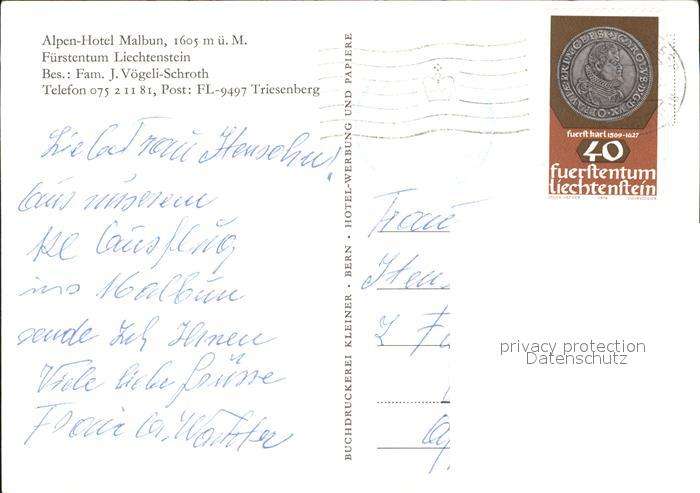 Alpen-Hotel Malbun, 1605 m ü. M.
Fürstentum Liechtenstein
Bes.: Fam. J. Vögeli-Schroth
Telefon 075 2 11 81, Post: FL-9497 Triesenberg
Liebe Frau Hensehn!
aus unserem
Ausflug
ins Malbun
sende Ich Ihnen
Viele liebe Grüsse
Frau
BUCHDRUCKEREI KLEINER · BERN · HOTEL-WERBUNG UND PAPIERE
fuerst karl 1569-1627
40
fuerstentum
liechtenstein
Frau
Hen
privacy protection
Datenschutz